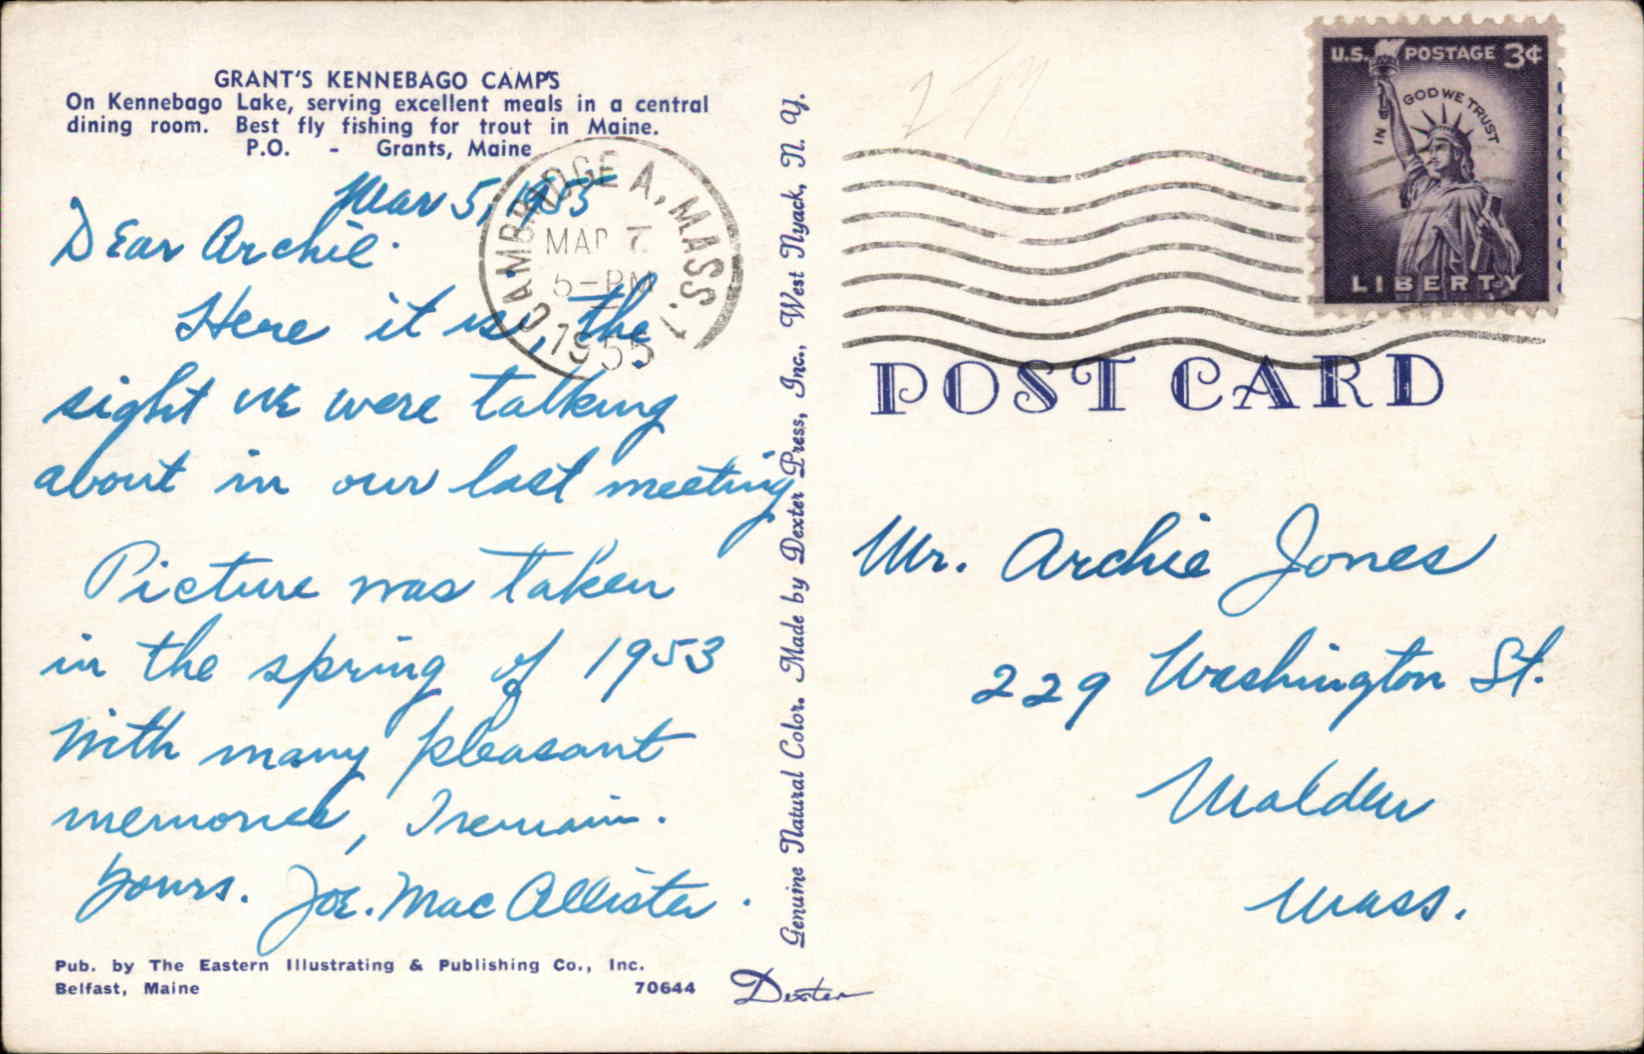 GRANT'S KENNEBAGO CAMPS
On Kennebago Lake, serving excellent meals in a central
dining room. Best fly fishing for trout in Maine.
P.O. - Grants, Maine
Mar 5, 1955
Dear Archie.
Here it is, the
sight we were talking
about in our last meeting
Picture was taken
in the spring of 1953
With many pleasant
memories, I remain.
Yours. Joe. MacAllister.
Pub. by The Eastern Illustrating & Publishing Co., Inc.
Belfast, Maine 70644
Dexter
Genuine Natural Color. Made by Dexter Press, Inc., West Nyack, N. Y.
CAMBRIDGE A, MASS. 1
MAR 7
5-PM
1955
U.S. POSTAGE 3¢
IN GOD WE TRUST
LIBERTY
POST CARD
Mr. Archie Jones
229 Washington St.
Malden
Mass.